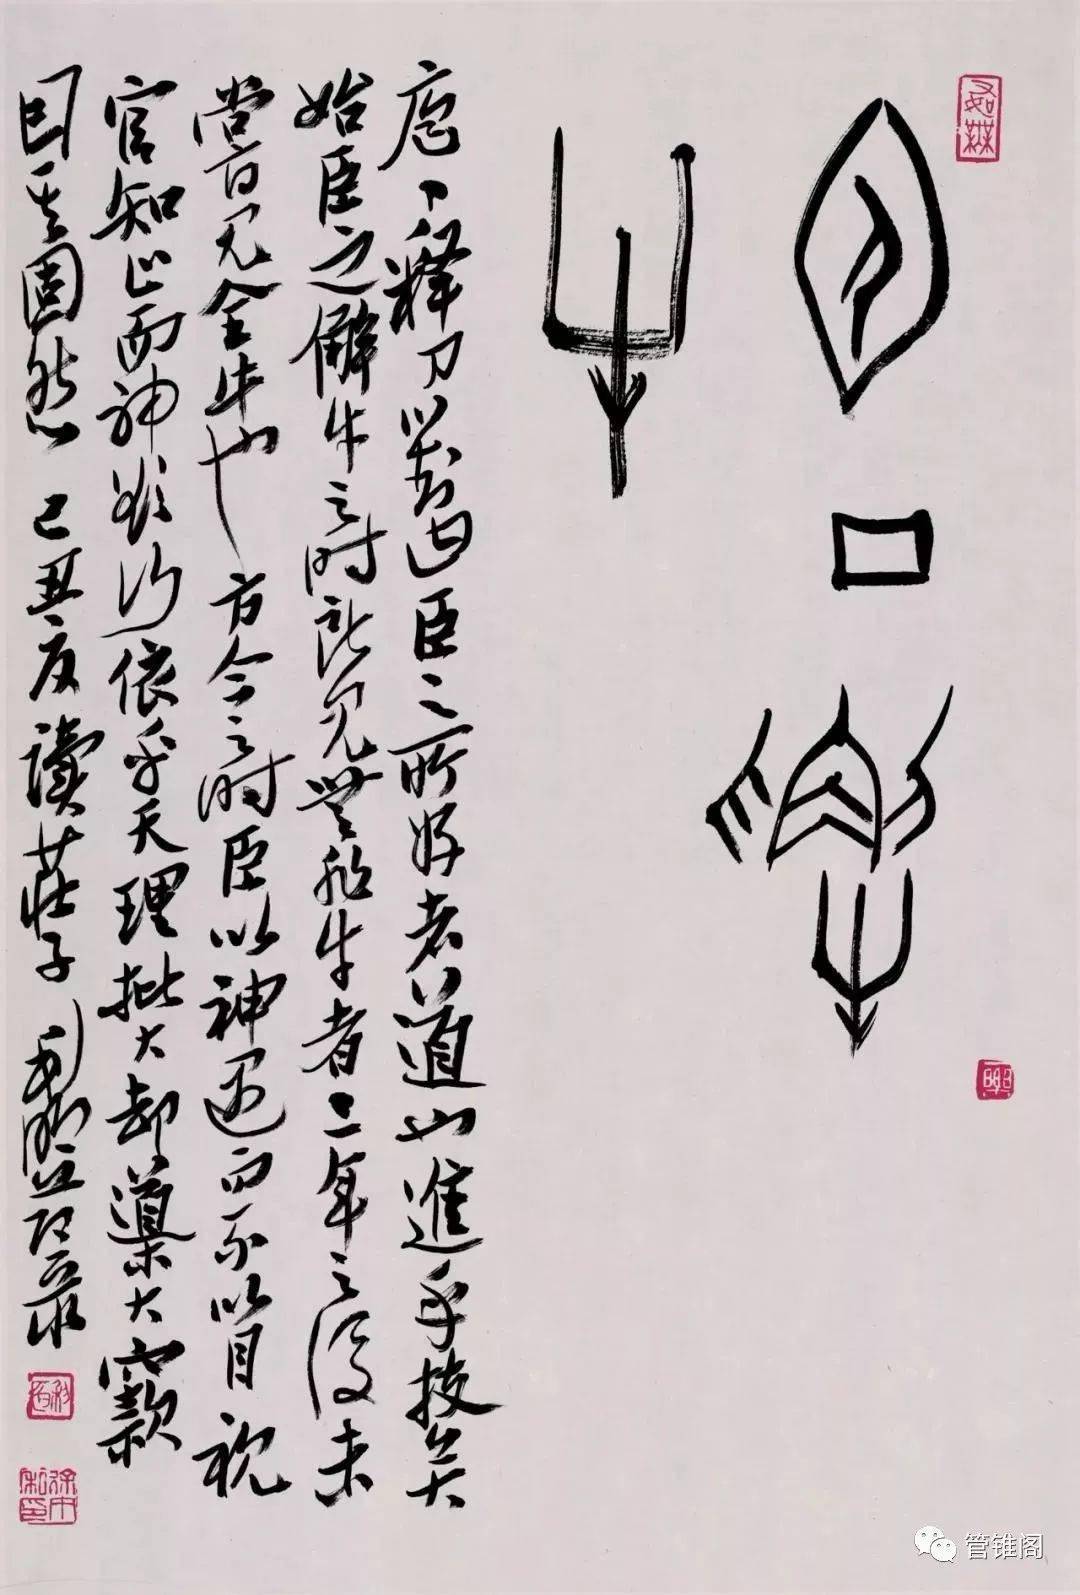 包丁解
牛
庖丁释刀對曰臣之所好者道也進乎技矣
始臣之解牛之时所見無非牛者三年之後未
嘗見全牛也方今之时臣以神遇而不以目視
官知止而神欲行依乎天理批大郤導大窾
因其固然 己丑夏讀莊子
管锥阁